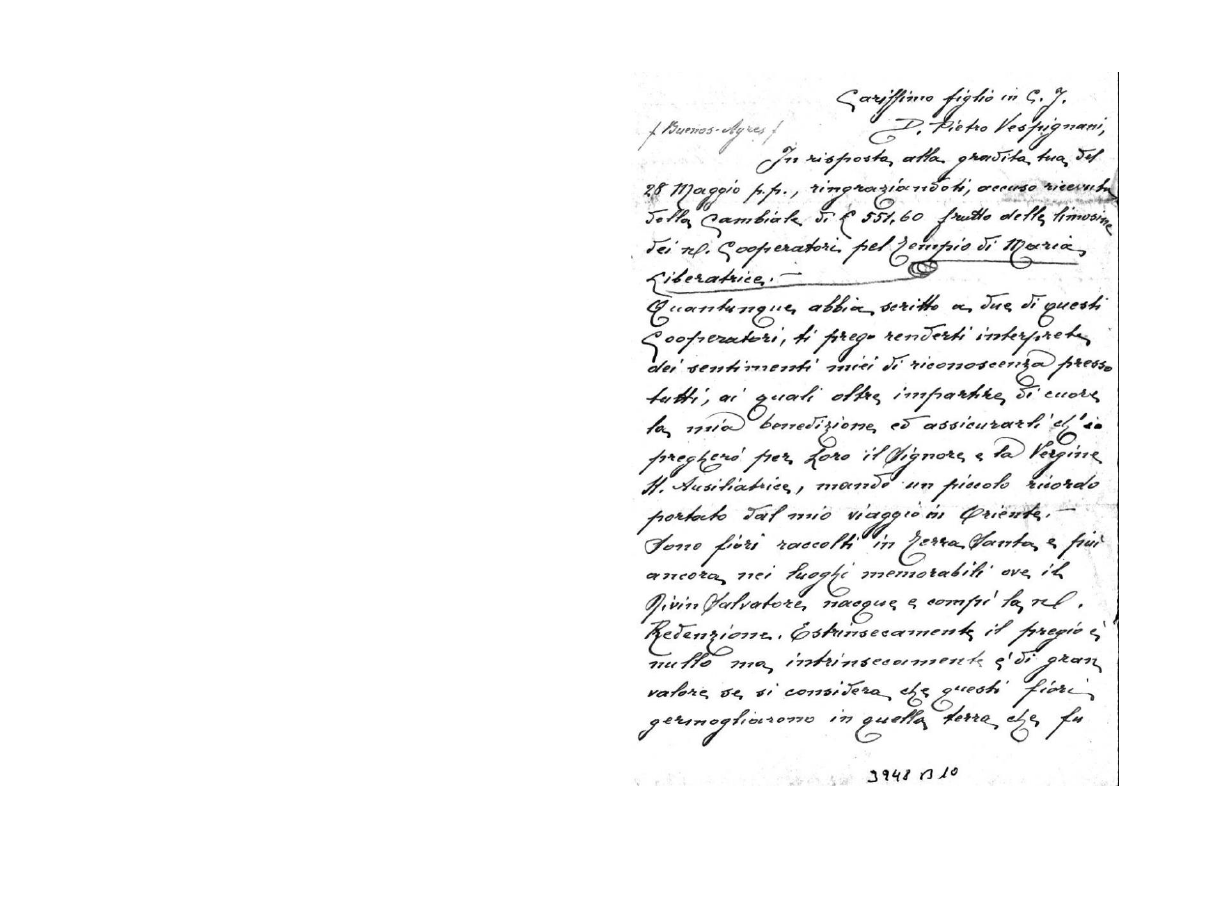 Carissimo figlio in G. C.
(Buenos-Ayres)
D. Pietro Vespignani,
In risposta alla gradita tua del
28 Maggio p.p., ringraziandoti, accuso ricevuta
della Cambiale di £ 551,60 frutto delle limosine
dei n/. Cooperatori pel Tempio di Maria
Liberatrice. —
Quantunque abbia scritto a due di questi
Cooperatori, ti prego renderti interprete
dei sentimenti miei di riconoscenza presso
tutti, ai quali oltre impartire di cuore
la mia benedizione ed assicurarli ch'io
pregherò per Loro il Signore e la Vergine
Ausiliatrice, mando un piccolo ricordo
portato dal mio viaggio in Oriente. —
Sono fiori raccolti in Terra Santa e più
ancora nei luoghi memorabili ove il
Divin Salvatore nacque e compì la n/.
Redenzione. Estrinsecamente il pregio è
nullo ma intrinsecamente è di gran
valore se si considera che questi fiori
germogliarono in quella terra che fu
3948 B 10